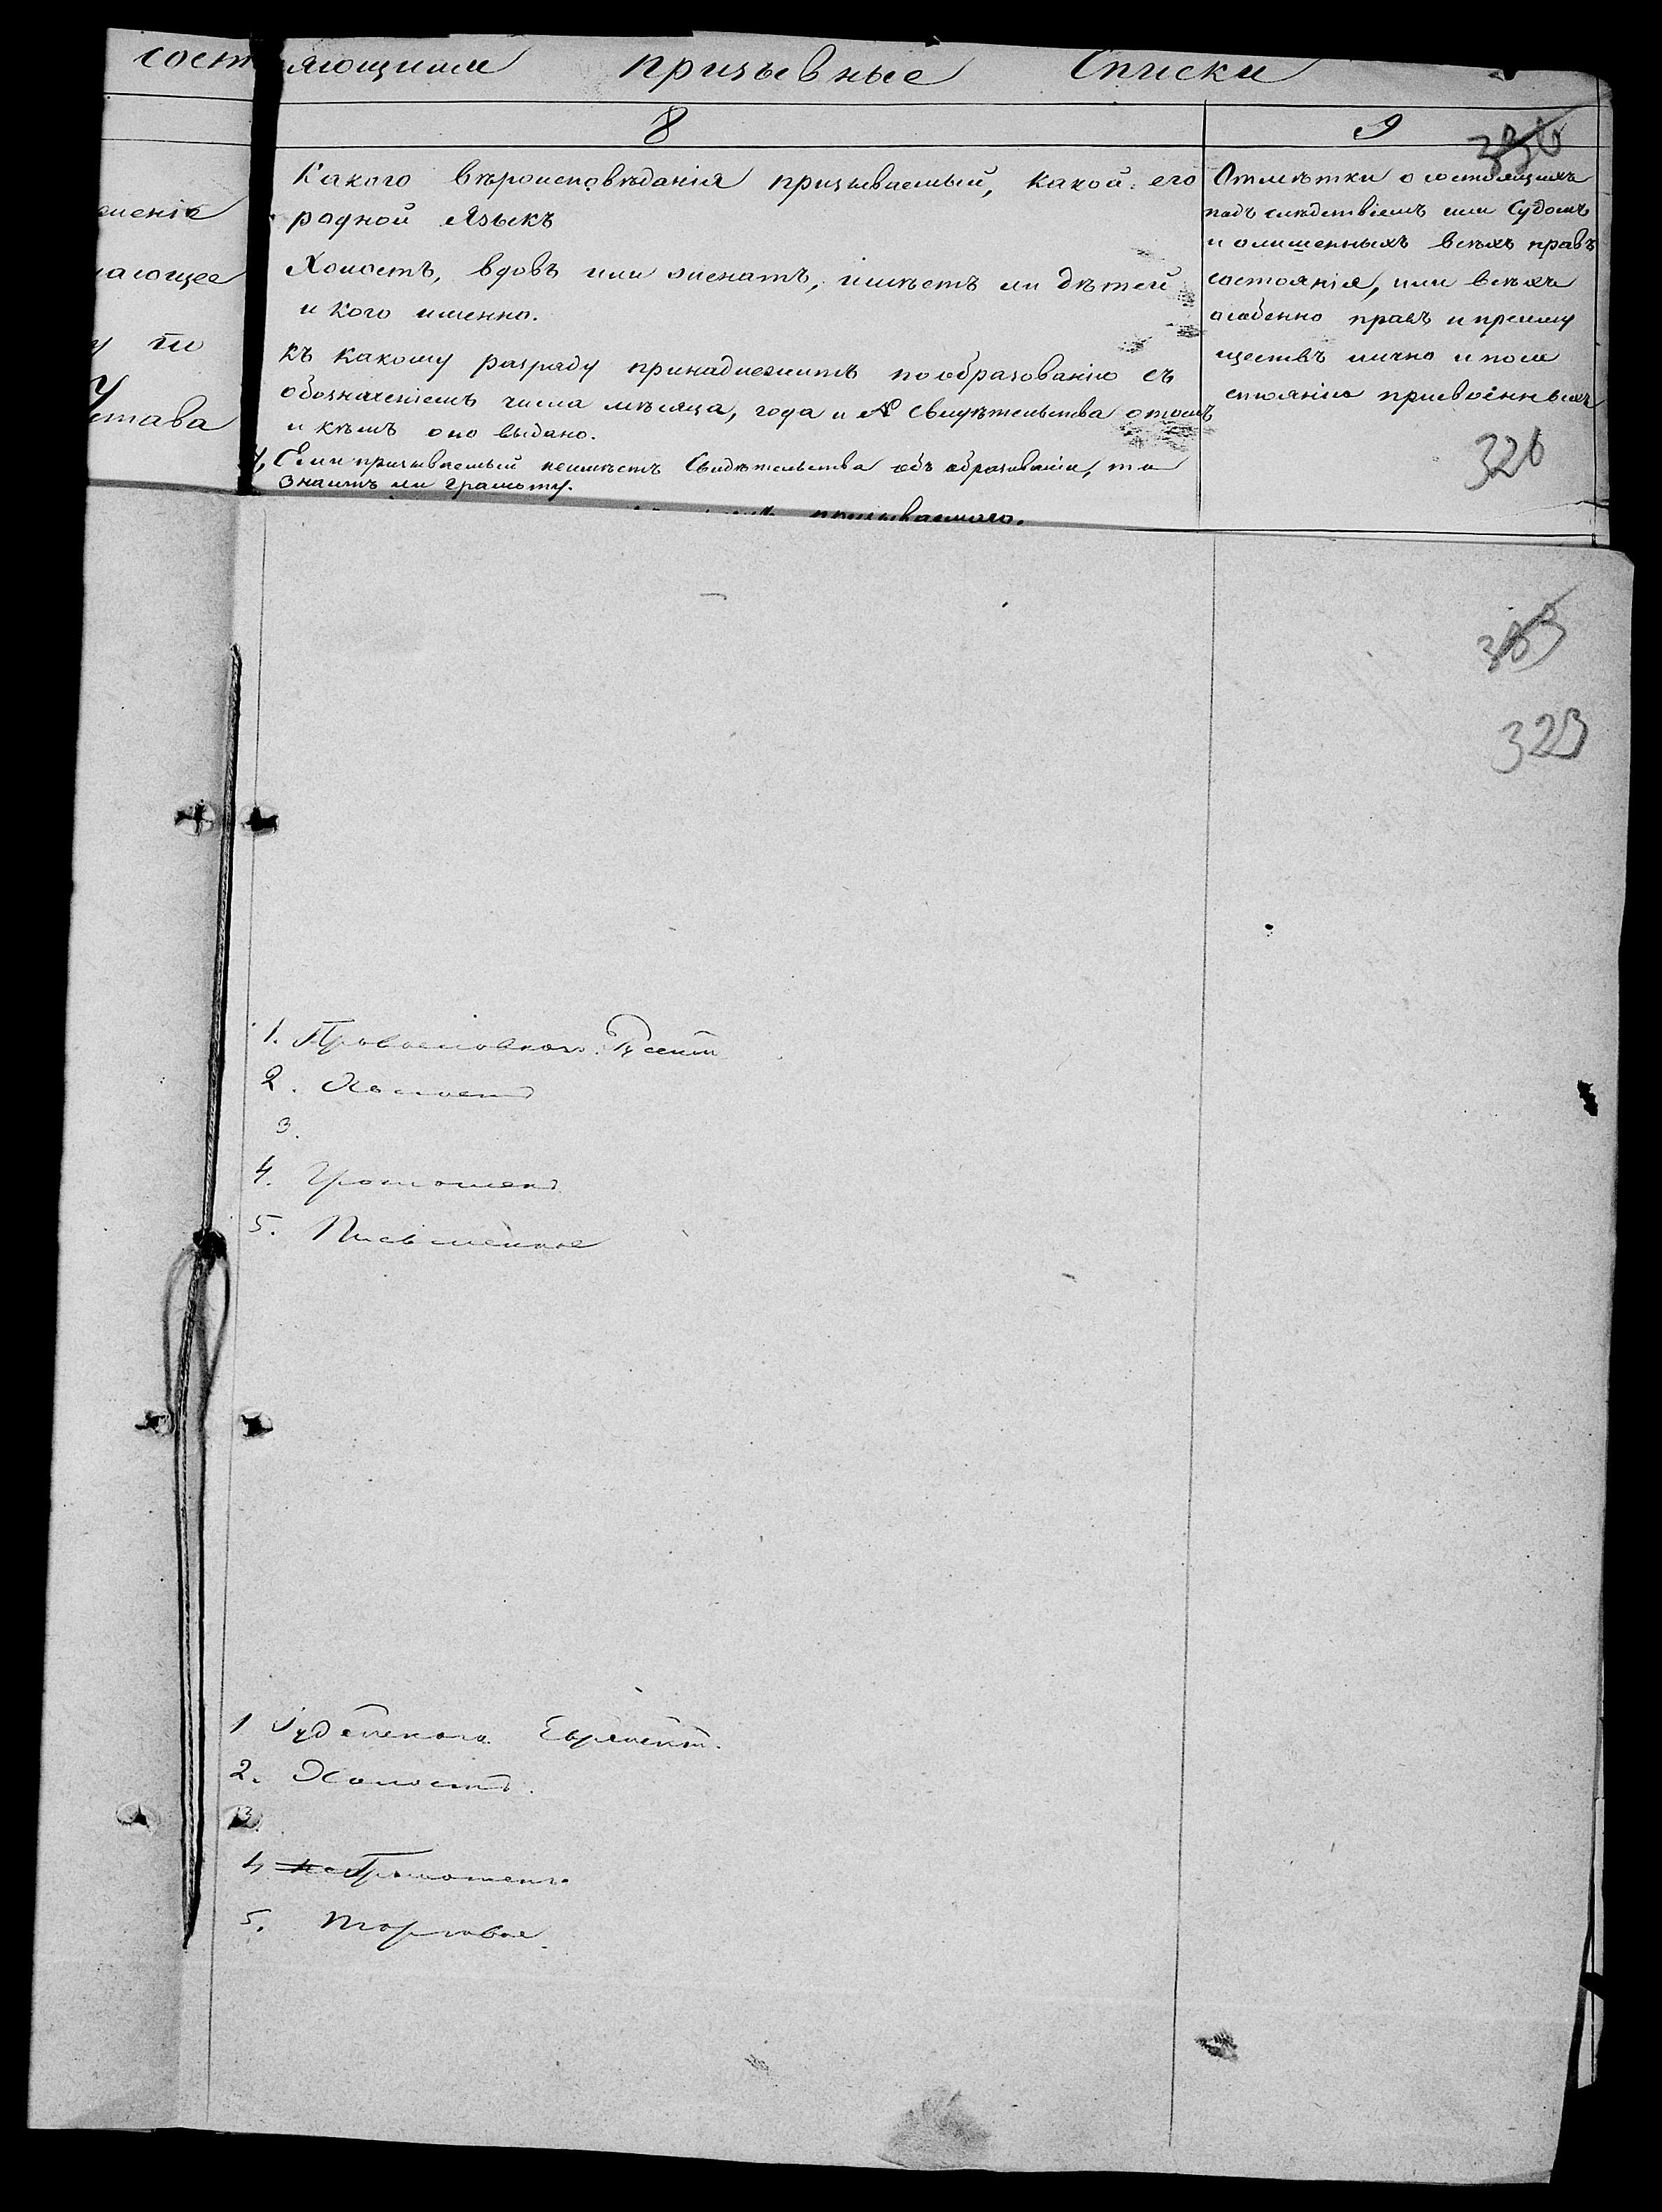 сост яющими призывные Списки
8
9
336
Какого вѣроисповѣданія призываемый, какой его
родной языкъ
Холостъ, вдовъ или женатъ, имѣетъ ли дѣтей
и кого именно.
къ какому разряду принадлежитъ по образованію съ
обозначеніемъ числа мѣсяца, года и № свидѣтельства о томъ
и кѣмъ оно выдано.
4, Если призываемый неимѣетъ Свидѣтельства объ образованіи, то
знаитъ ли грамоту.
призываемаго.
Отмѣтки о состоящихъ
подъ слѣдствіемъ или Судомъ
и олишенныхъ всѣхъ правъ
состоянія, или всѣхъ
особенно правъ и преиму
ществъ лично и посо
стоянію присвоенныхъ
326
женія
ающее
у по
у
става
329
1. Православнаго. Русскій
2. Холостъ
3.
4. Грамотенъ
5. Письменное
1 Іудейскаго Еврейскій.
2. Холостъ.
3.
4 не Грамотенъ.
5. Торговое.